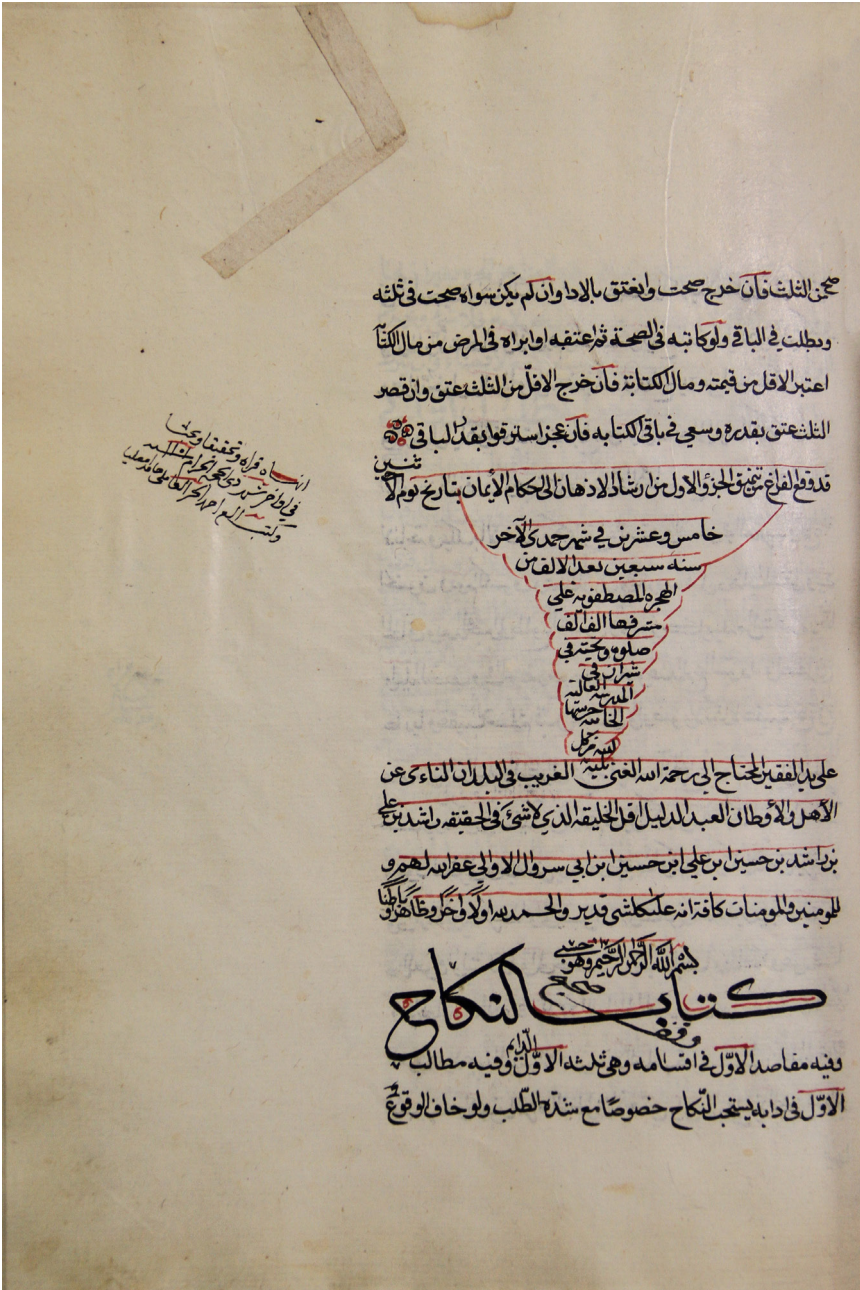 صح من الثلث فان خرج صحت وانعتق بالادا وان لم يكن سواه صحت في ثلثه
وبطلت في الباقي ولو كاتبه في الصحة ثم اعتقه او ابراه في المرض من مال الكتابة
اعتبر الاقل من قيمته ومال الكتابة فان خرج الاقلّ من الثلث عتق وان قصر
الثلث عتق بقدره وسعي في باقي الكتابه فان عجز استرقوا بقدر الباقي
قد وقع الفراغ من تنميق الجزؤ الاول من ارشاد الاذهان الى احكام الأيمان بتاريخ يوم الاثنين
خامس وعشرين في شهر جمدى الآخر
سنه سبعين بعد الالف من
الهجره المصطفويه علي
مشرفها الف الف
صلوه وتحيته في
شيراز في
المدرسه العالية
حرسها
الله
على يد الفقير المحتاج الي رحمة الله الغني الغريب في البلدان الناءى عن
الأهل والأوطان العبد الذليل اقل الخليقه الذي لا شئ في الحقيقه راشد بن علي
بن راشد بن حسين ابن علي ابن حسين ابن ابي سروال الاوالي عفر الله لهم و
للمومنين والمومنات كافة انه على كلشى قدير والحمد لله اولًا واخرًا وظاهرًا وباطنًا
بسم الله الرحمن الرحيم وهو حسبي
كتاب النكاح
وقف
وفيه مقاصد الاوّل في اقسامه وهي ثلثه الاوّل الدايم وفيه مطالب
الاوّل في ادابه يستحب النّكاح خصوصًا مع شدّة الطّلب ولو خاف الوقوع
انهاه قراه وتحقيقا وبحثا
في اواخر شهر ذي الحجة الحرام
وكتب العبد احمد الحر العاملي حامدا مصليا